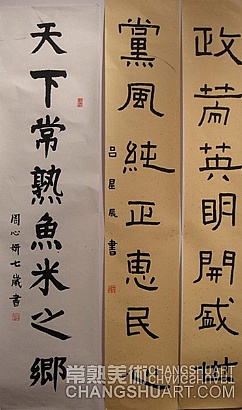 政策英明開盛世
黨風純正惠民心
呂星辰書
天下常熟魚米之鄉
周心妍七歲書
常熟美術 CHANGSHUART
CHANGSHUART.COM